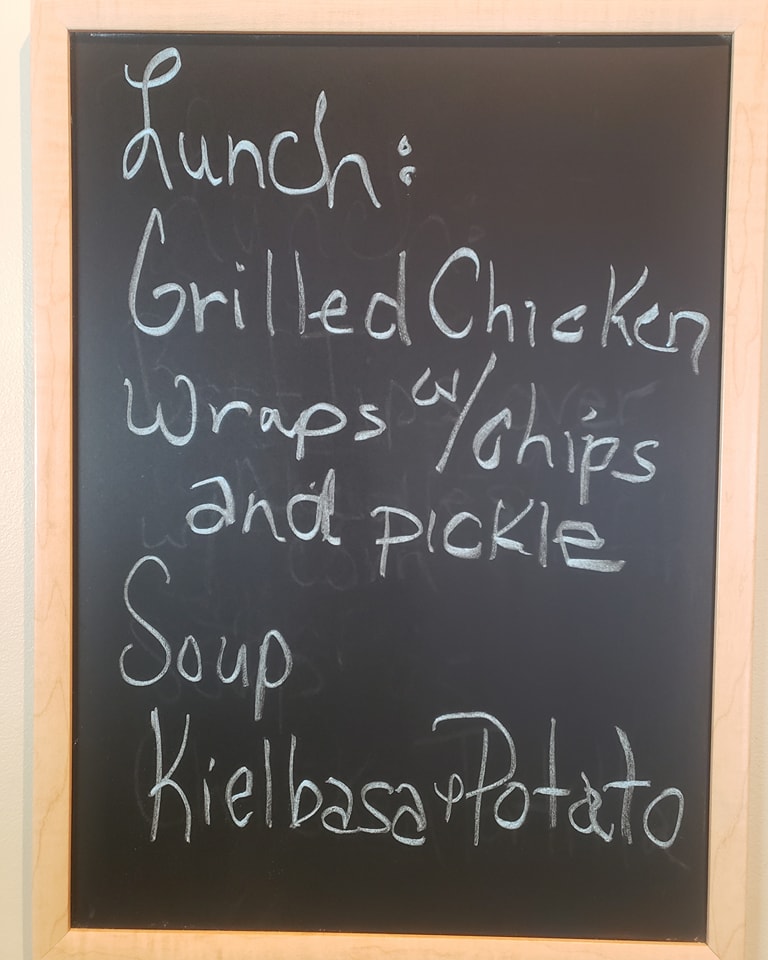 Lunch:
Grilled Chicken
Wraps w/chips
and pickle
Soup
Kielbasa & Potato